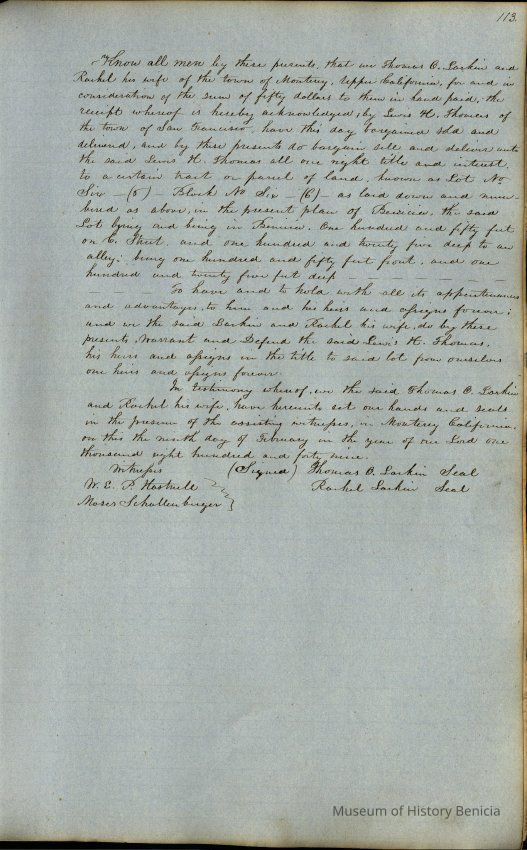 113.
Know all men by these presents, that we Thomas O. Larkin and
Rachel his wife of the town of Monterey, Upper California, for and in
consideration of the sum of fifty dollars to them in hand paid, the
receipt whereof is hereby acknowledged, by Lewis H. Thomas of
the town of San Francisco, have this day bargained sold and
delivered, and by these presents do bargain sell and deliver unto
the said Lewis H. Thomas all our right title and interest,
to a certain tract or parcel of land, known as Lot No
Six – – Block No Six – (6) – as laid down and num-
bered as above, in the present plan of Benicia, the said
Lot lying and being in Benicia, One hundred and fifty feet
on C. Street, and one hundred and twenty five deep to an
alley: being one hundred and fifty feet front, and one
hundred and twenty five feet deep – – – – – – –
– – – To have and to hold with all its appurtenances
and advantages, to him and his heirs and assigns forever;
and we the said Larkin and Rachel his wife, do by these
presents, Warrant and Defend the said Lewis H. Thomas,
his heirs and assigns in the title to said lot from ourselves
our heirs and assigns forever.
In testimony whereof, we the said Thomas O. Larkin
and Rachel his wife, have hereunto set our hands and seals
in the presence of the assisting witnesses, in Monterey California,
on this the ninth day of February in the year of our Lord one
thousand eight hundred and forty nine.
Witnesses (Signed) Thomas O. Larkin Seal
W. E. P. Hartnell Rachel Larkin Seal
Moses Schallenberger
Museum of History Benicia